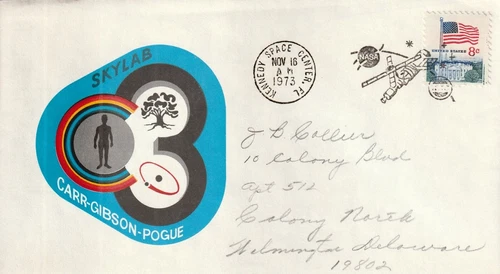 SKYLAB
CARR-GIBSON-POGUE
KENNEDY SPACE CENTER, FL
NOV 16
AM
1973
NASA
UNITED STATES 8c
J B Collier
10 Colony Blvd
Apt 512
Colony North
Wilmington Delaware
19802